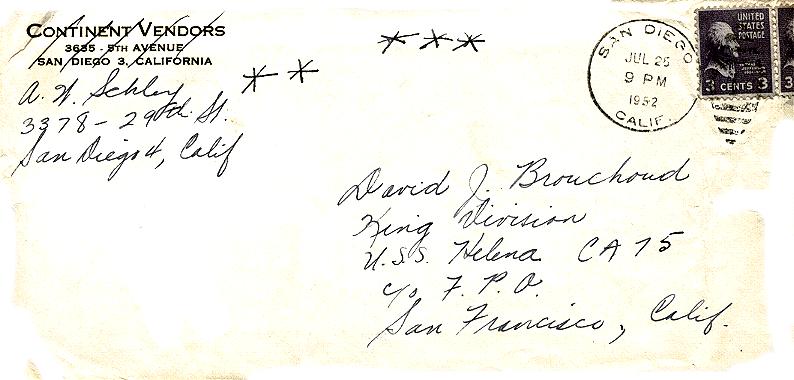 CONTINENT VENDORS
3635 - 5TH AVENUE
SAN DIEGO 3, CALIFORNIA
A. W. Schley
3378 - 29th St.
San Diego 4, Calif
SAN DIEGO
JUL 25
9 PM
1952
CALIF.
UNITED
STATES
POSTAGE
3 CENTS 3
3
David J. Brouchoud
King Division
U.S.S. Helena CA 75
c/o F. P. O.
San Francisco, Calif.